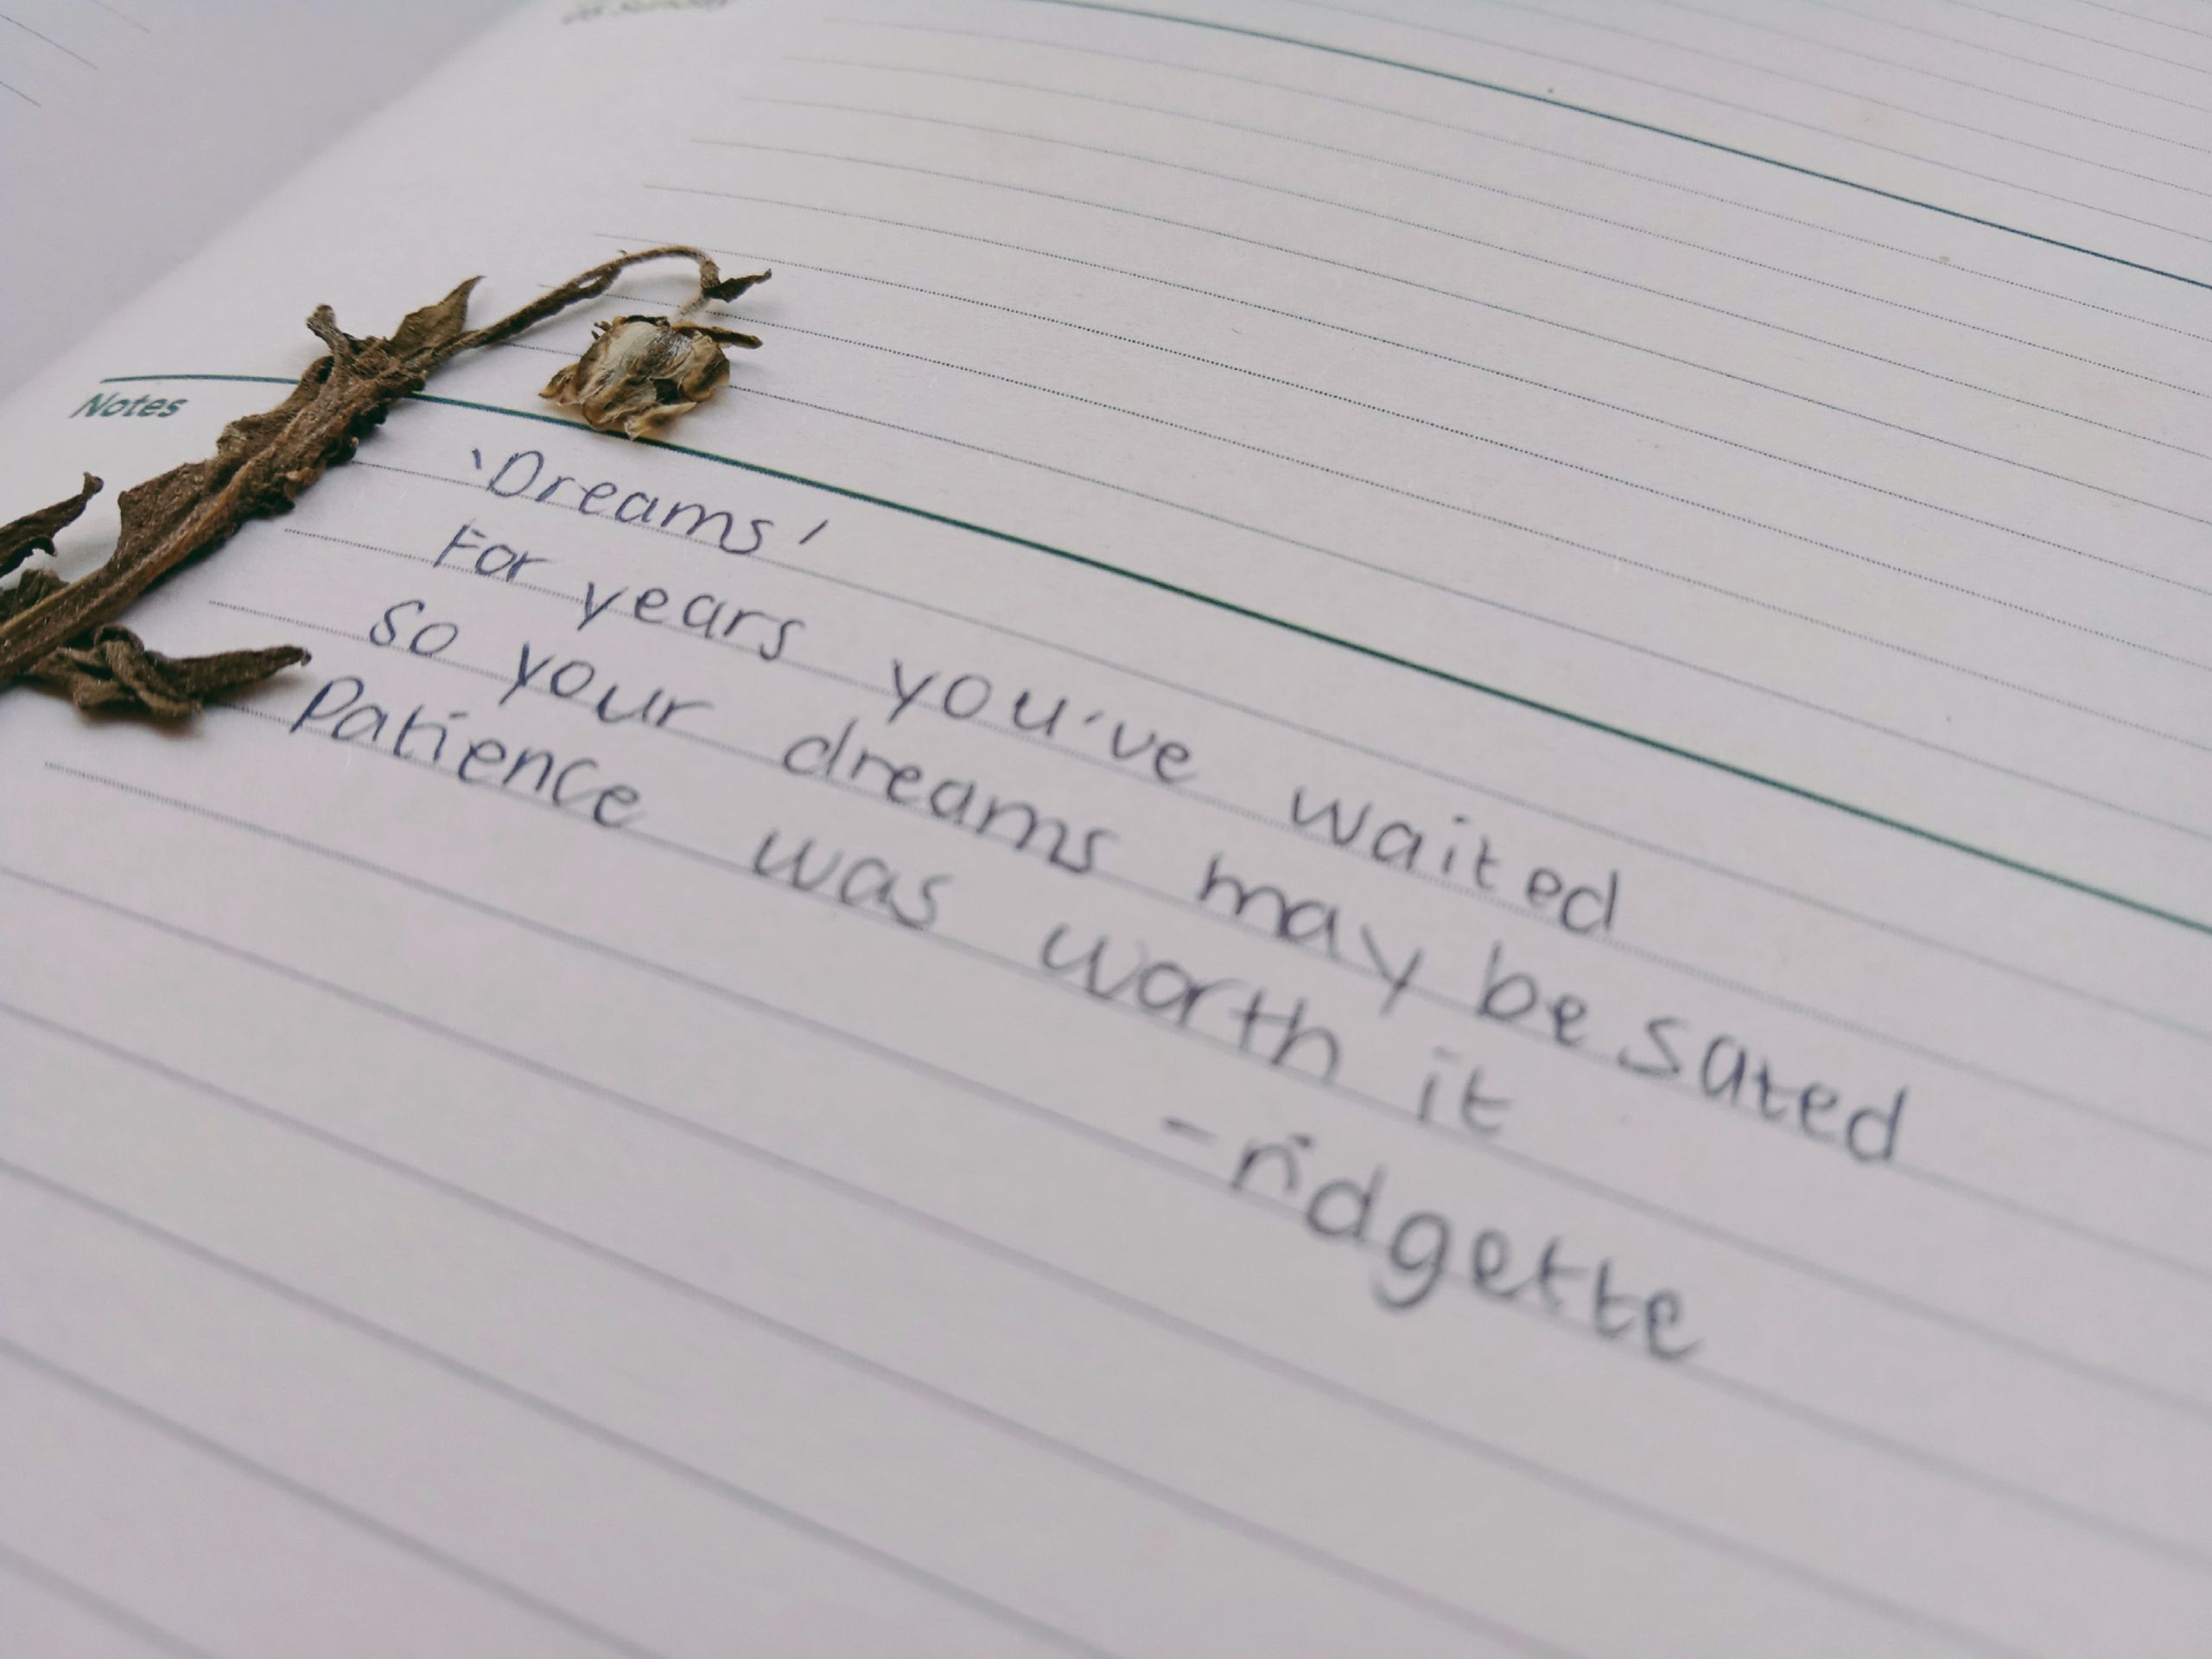 Sunday
Notes
'Dreams'
For years you've waited
So your dreams may be sated
Patience was worth it
-ridgette